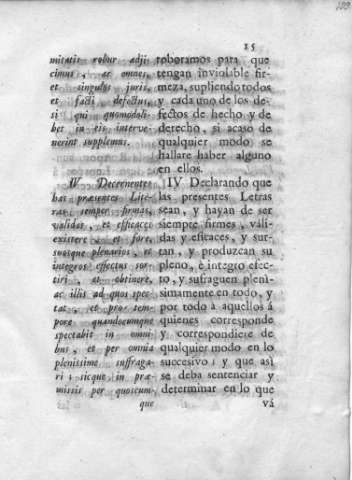 15
mitatis robur adji-
cimus, ac omnes,
et singulos juris,
et facti defectus,
si qui quomodoli-
bet in eis interve-
nerint supplemus.
IV Decernentes
has praesentes Lite-
ras semper firmas,
validas, et efficaces
existere, et fore,
suosque plenarios, et
integros effectus sor-
tiri, et obtinere,
ac illis ad quos spec-
tat, et pro tem-
pore quandocumque
spectabit in omni-
bus, et per omnia
plenissime suffraga-
ri; sicque in præ-
missis per quoscum-
que
roboramos para que
tengan inviolable fir-
meza, supliendo todos
y cada uno de los de-
fectos de hecho y de
derecho, si acaso de
qualquier modo se
hallare haber alguno
en ellos.
IV Declarando que
las presentes Letras
sean, y hayan de ser
siempre firmes, váli-
das y eficaces, y sur-
tan, y produzcan su
pleno, é integro efec-
to, y sufraguen pleni-
simamente en todo, y
por todo à aquellos á
quienes corresponde
y correspondiere de
qualquier modo en lo
succesivo; y que asi
se deba sentenciar y
determinar en lo que
vá